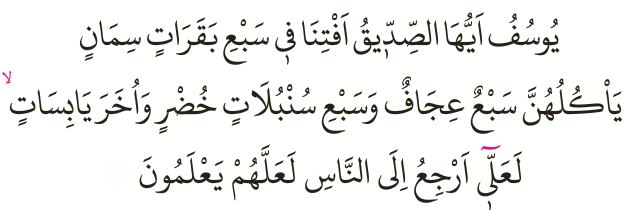 يُوسُفُ اَيُّهَا الصِّدّ۪يقُ اَفْتِنَا ف۪ي سَبْعِ بَقَرَاتٍ سِمَانٍ
يَأْكُلُهُنَّ سَبْعٌ عِجَافٌ وَسَبْعِ سُنْبُلَاتٍ خُضْرٍ وَاُخَرَ يَابِسَاتٍۙ
لَعَلّ۪ٓي اَرْجِعُ اِلَى النَّاسِ لَعَلَّهُمْ يَعْلَمُونَ